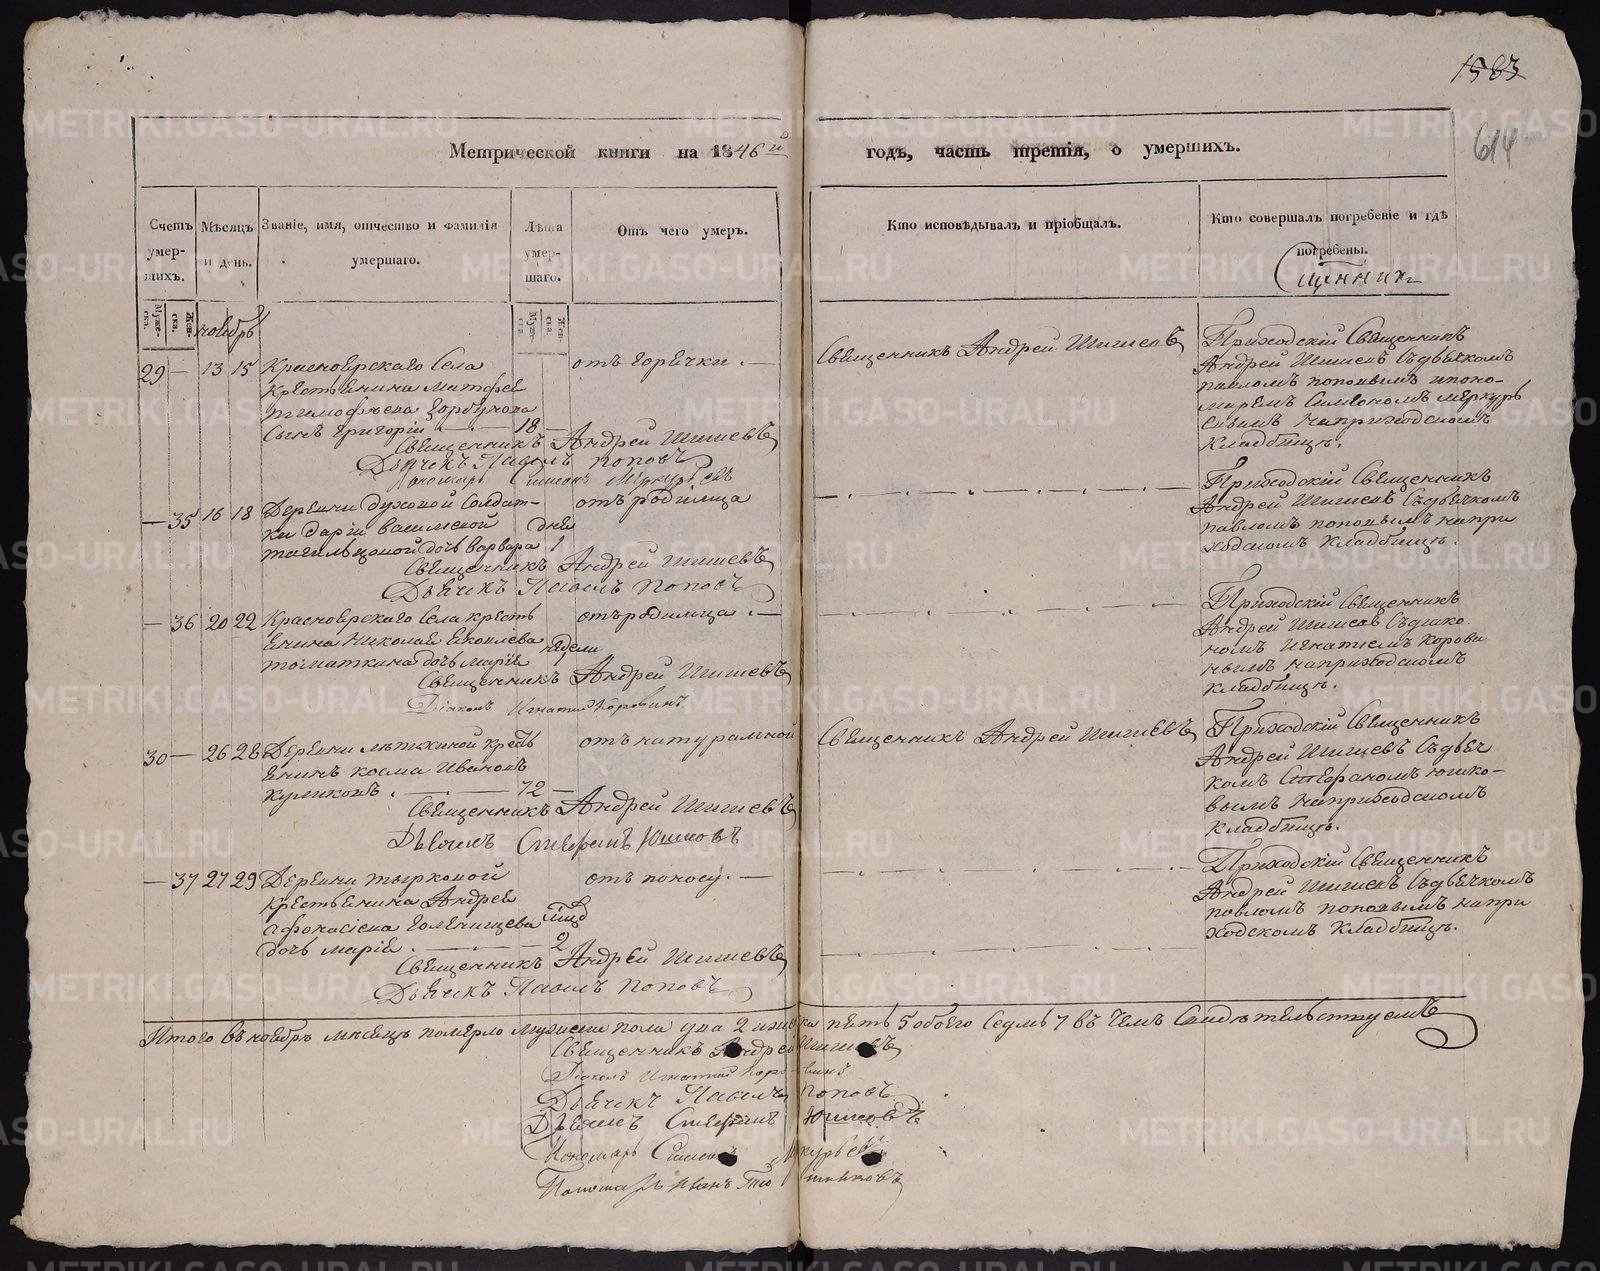 1583
614
Метрической книги на 1846й годъ, часть третія, о умершихъ.
Счетъ умер-шихъ.
Мѣсяцъ и день.
Званіе, имя, отчество и фамилія умершаго.
Лѣта умер-шаго.
Отъ чего умеръ.
Кто исповѣдывалъ и пріобщалъ.
Кто совершалъ погребеніе и гдѣ погребены.
Муже-ска.
Жен-ска.
Муже-ска
Жен-ска
ноябрь
29 — 13 15 Красноярскаго Села
крестьянина Матфея
тимофѣева Горбунова
Сынъ Григорій — 18 —
отъ горячки. —
Священникъ Андрей Шишевъ
Дьячекъ Павелъ Поповъ
Пономарь Симеонъ Меркурьевъ
Священникъ Андрей Шишевъ
Приходскій Священникъ
Андрей Шишевъ Съдьячкомъ
павломъ поповымъ ипоно-
маремъ Симеономъ меркурь
евымъ Наприходскомъ
Кладбищѣ.
— 35 16 18 Деревни духовой Солдат-
ки дарьи васильевой
дочь варвара
дня
1
отъ родимца
Священникъ Андрей Шишевъ
Дьячекъ Павелъ Поповъ
Приходскій Священникъ
Андрей Шишевъ Съдьячкомъ
павломъ поповымъ напри
ходскомъ кладбищѣ.
— 36 20 22 Красноярскаго Села кресть
янина Николая Яковлева
томаткина дочь марія
недели
1
отъ родимца. —
Священникъ Андрей Шишевъ
Діаконъ Игнатій Коровинъ
Приходскій Священникъ
Андрей Шишевъ Съдіако
номъ Игнатіемъ Корови
нымъ наприходскомъ
кладбищѣ.
30 — 26 28 Деревни лѣткиной кресть
янинъ косма Ивановъ
куликовъ. — 72 —
отъ натуральной
Священникъ Андрей Шишевъ
Дьячекъ Стефанъ Юшковъ
Священникъ Андрей Шишевъ
Приходскій Священникъ
Андрей Шишевъ Съдьяч
комъ Стефаномъ юшко-
вымъ Наприходскомъ
кладбищѣ.
— 37 27 29 Деревни тырковой
крестьянина Андрея
афонасіева Голенищева
дочь марія. — 2
отъ поносу. —
Священникъ Андрей Шишевъ
Дьячекъ Павелъ Поповъ
Приходскій Священникъ
Андрей Шишевъ Съдьячкомъ
павломъ поповымъ напри
ходскомъ кладбищѣ.
Итого въ ноябрѣ мѣсяцѣ померло мужеска пола два 2 иженска пять 5 обоего Седмь 7 въ чемъ Свидѣтельствуемъ
Священникъ Андрей Шишевъ
Діаконъ Игнатій Коровинъ
Дьячекъ Павелъ Поповъ
Дьячекъ Стефанъ Юшковъ
Пономарь Симеонъ Меркурьевъ
Пономарь Иванъ
METRIKI.GASO-URAL.RU